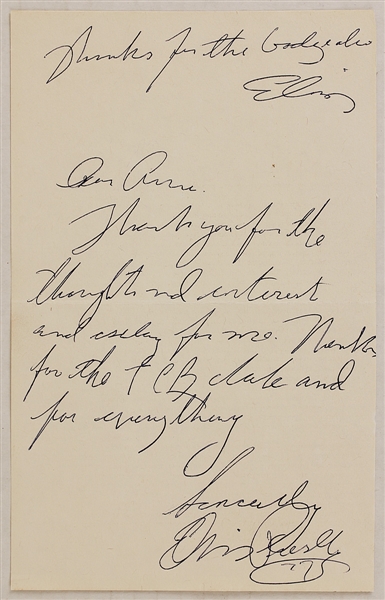 Thanks for the badge also
Elvis
Dear Anne.
Thank you for the
thoughts and interest
and for me. Thanks
for the TCB and
for everything
Sincerely
Elvis Presley
75